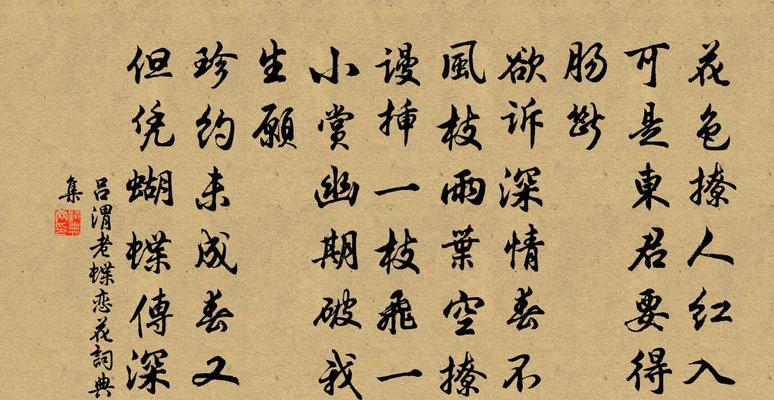 花色撩人红入
可是東君要得
肠斷
欲诉深情春不
風枝雨葉空撩
谩挿一枝飛一
小赏幽期破我
生願
珍约未成春又
但凭蝴蝶傳深
吕渭老蝶恋花詞典
集